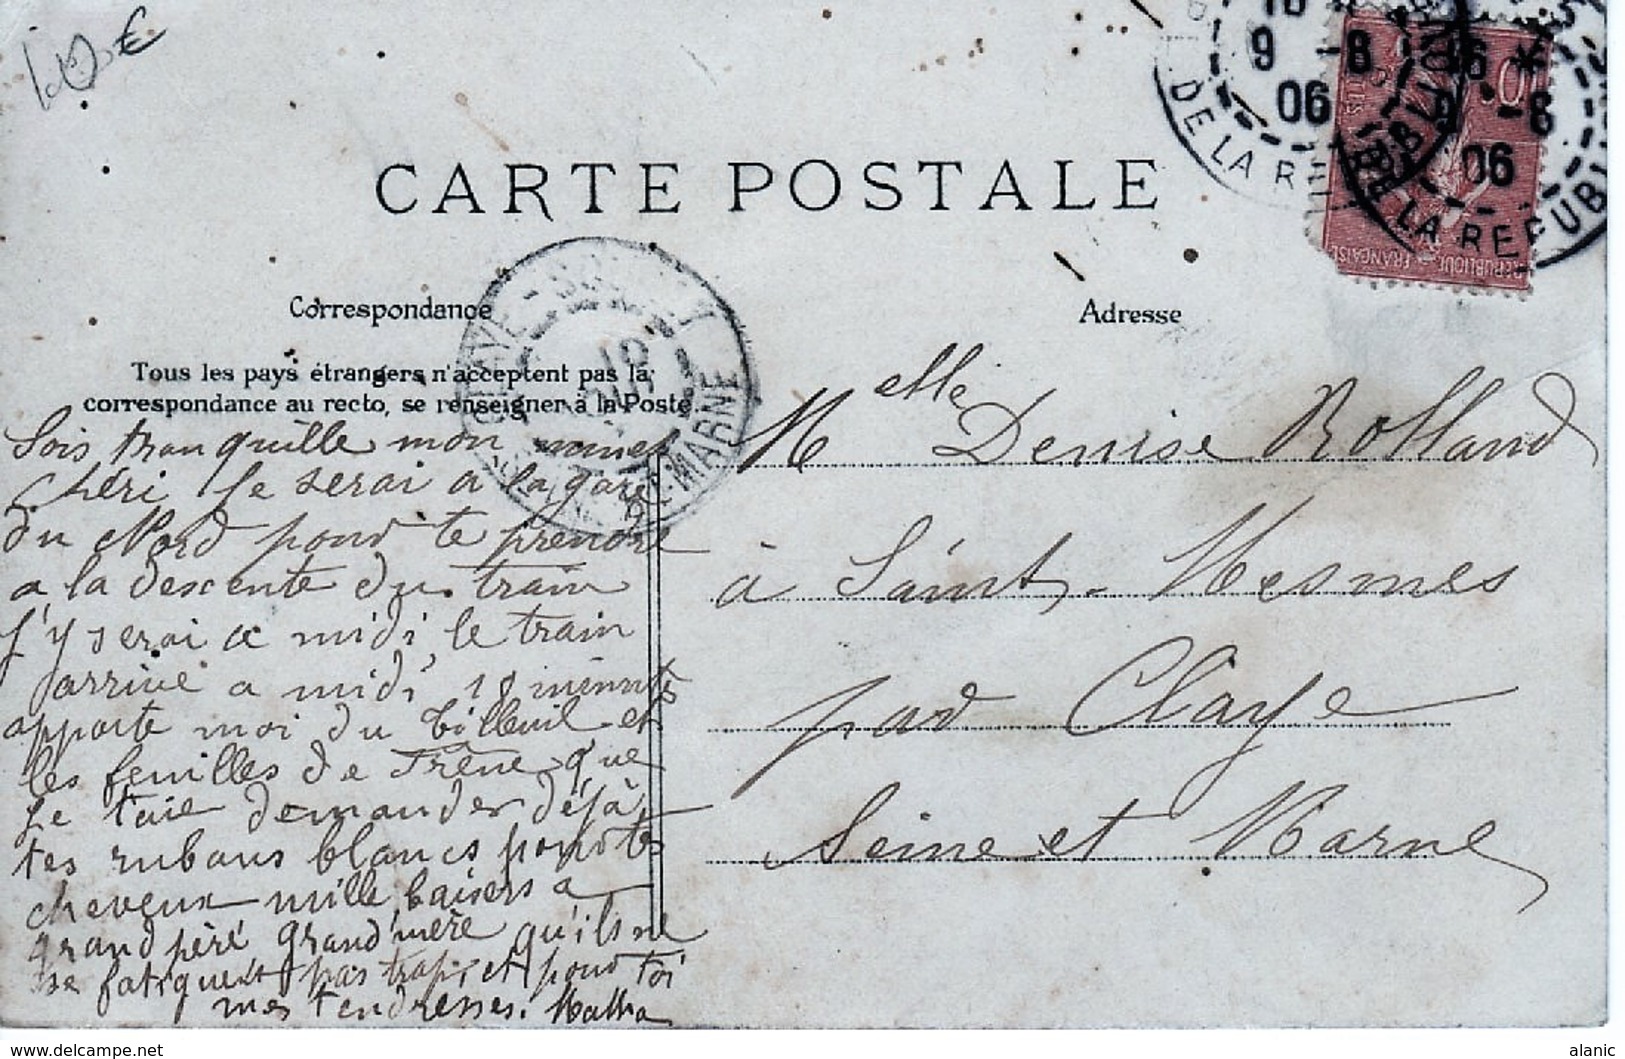 100 €
CARTE POSTALE
9 -8
06
DE LA RE
16 *
9 -8
06
DE LA REPUBLI
REPUBLIQUE FRANÇAISE
Correspondance
Adresse
Tous les pays étrangers n'acceptent pas la
correspondance au recto, se renseigner à la Poste
CLAYE-SOUILLY
10
SEINE-ET-MARNE
Sois tranquille mon minet
chéri je serai a la gare
du Nord pour te prendre
a la descente du train
j'y serai a midi, le train
arrive a midi 18 minutes
apporte moi du tilleuil et
les feuilles de Frene que
je t'aie demander déjà
tes rubans blancs pour tes
cheveux mille baisers a
grand père grand'mère qu'ils ne
se fatiguent pas trop, et pour toi
mes tendresses.
Melle Denise Rolland
à Saint-Mesmes
par Claye
Seine et Marne
https://www.delcampe.net
alanic